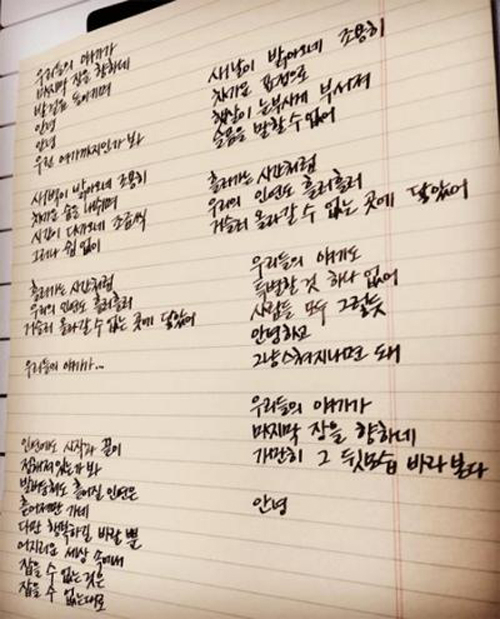 우리들의 얘기가
마지막 장을 향하네
발걸음 돌아서며
안녕
안녕
우린 여기까지인가 봐
새벽이 밝아오네 조용히
차가운 숨을 내쉬며
시간이 다가오네 조금씩
그러나 쉼 없이
흘러가는 시간처럼
우리의 인연도 흘러흘러
거슬러 올라갈 수 없는 곳에 닿았어
우리들의 얘기가...
인연에도 시작과 끝이
정해져있는가 봐
발버둥쳐도 흩어질 인연은
흩어져만 가네
다만 행복하길 바랄 뿐
어지러운 세상 속에서
잡을 수 없는 것은
잡을 수 없는대로
새날이 밝아오네 조용히
차가운 표정으로
햇살이 눈부시게 부서져
슬픔을 말할 수 없어
흘러가는 시간처럼
우리의 인연도 흘러흘러
거슬러 올라갈 수 없는 곳에 닿았어
우리들의 얘기도
특별할 것 하나 없어
사람들 모두 그렇듯
안녕하고
그냥 스쳐지나면 돼
우리들의 얘기가
마지막 장을 향하네
가만히 그 뒷모습 바라본다
안녕